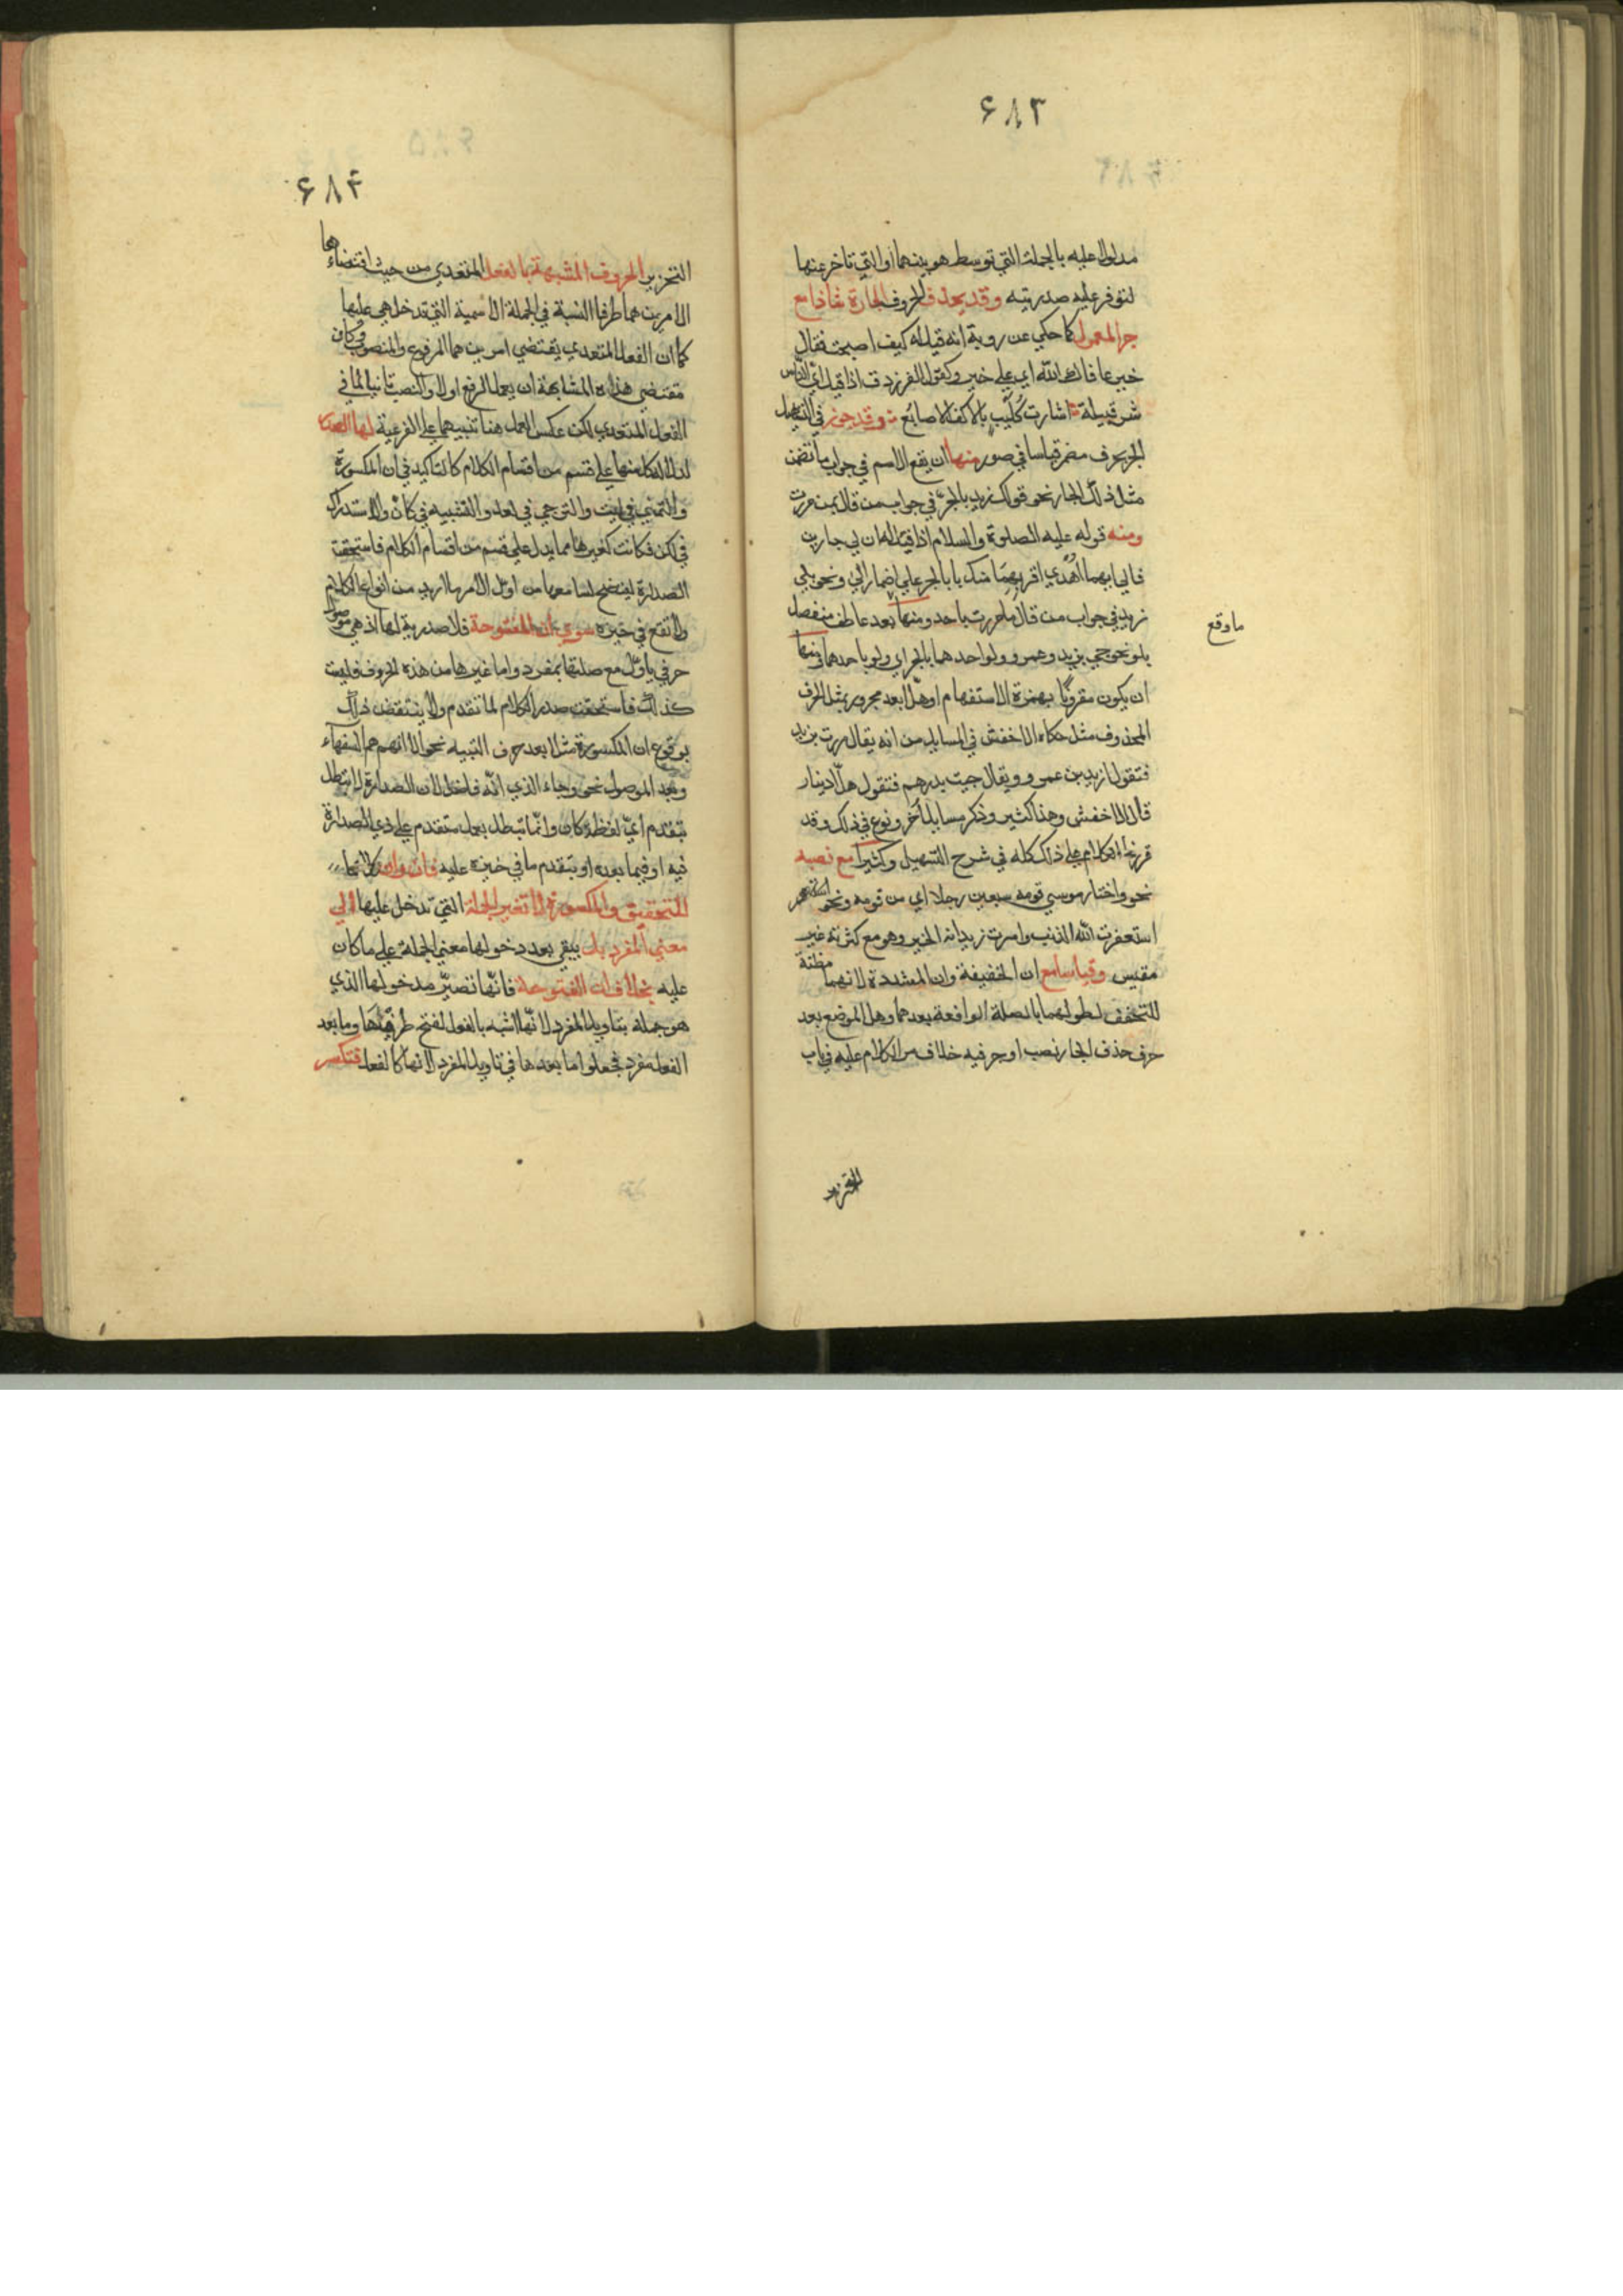 ٦٨٣
مدلولا عليه بالجملة التي توسط هو بينهما او التي تاخر عنها
لتوفر عليه صدريته وقد يحذف الحروف الجارة شاذا مع
جر المعمول كما حكي عن روبة انه قيل له كيف اصبحت فقال
خير عافاك الله اي علي خير وكقول الفرزدق اذا قيل اي الناس
شر قبيلة اشارت كليب بالاكف الاصابع وقد جوز في
الجر بحرف مضمر قياسا في صور منها ان يقع الاسم في جواب ما تضمن
مثل ذلك الجار نحو قولك زيد بالجر في جواب من قال بمن مررت
ومنه قوله عليه الصلوة والسلام اذا قيل له ان لي جارين
فالي ايهما اهدي اقربهما منك بابا بالجر علي اضمار الي ونحو بلي
زيد في جواب من قال ما مررت باحد ومنها بعد عاطف منفصل
بلو نحو جي بزيد وعمرو ولو احدهما بالجر اي ولو باحدهما ومنها
ان يكون مقرونا بهمزة الاستفهام او هلا بعد مجرور بمثل الحرف
المحذوف مثل حكاه الاخفش في المسايل من انه يقال مررت بزيد
فتقول ازيد بن عمرو ويقال جيت بدرهم فتقول هلا دينار
قال الاخفش وهذا كثير وذكر مسايل اخر ونوع في ذلك وقد
قررنا الكلام علي ذلك كله في شرح التسهيل وكثيرا مع نصبه
نحو واختار موسي قومه سبعين رجلا اي من قومه ونحو
استغفرت الله الذنب وامرت زيدا الخير وهو مع كثرته غير
مقيس وقياسا مع ان الخفيفة وان المشددة لانهما مظنة
للتخفف لطولهما بالصلة الواقعة بعدهما وهل الموضع بعد
حرف حذف الجار نصب او جر فيه خلاف مر الكلام عليه في باب
ما وقع
التحرير
٦٨٤
التحرير الحروف المشبهة بالفعل المتعدي من حيث اقتضاءها
الامرين هما طرفا النسبة في الجملة الاسمية التي تدخل هي عليها
كما ان الفعل المتعدي يقتضي امرين هما المرفوع والمنصوب وكان
مقتضي هذه المشابهة ان يعمل الرفع اولا والنصب ثانيا كما في
الفعل المتعدي لكن عكس العمل هنا تنبيها علي الفرعية لها الصدر
لدلالة كل منها علي قسم من اقسام الكلام كالتاكيد في ان المكسورة
والتمني في ليت والترجي في لعل والتشبيه في كان والاستدراك
في لكن فكانت كغيرها مما يدل علي قسم من اقسام الكلام فاستحقت
الصدارة ليتضح لسامعها من اول الامر ما اريد من انواع الكلام
ولا تقع في حيزه سوي ان المفتوحة فلا صدرية لها اذ هي موصول
حرفي ياول مع صلتها بمفرد واما غيرها من هذه الحروف فليست
كذلك فاستحقت صدر الكلام لما تقدم ولا ينتقض ذلك
بوقوع ان المكسورة مثلا بعد حرف التنبيه نحو الا انهم هم السفهاء
وبعد الموصول نحو وجاء الذي انه فاضل لان الصدارة لا تبطل
بتقدم اي لفظ كان وانما تبطل بعمل متقدم علي ذي الصدارة
فيه او فيما بعده او بتقدم ما في حيزه عليه فان وان كلاهما
للتحقيق والمكسورة لا تغير الجملة التي تدخل عليها الي
معني المفرد بل يبقي بعد دخولها معني الجملة علي ما كان
عليه بخلاف ان المفتوحة فانها تصير مدخولها الذي
هو جملة بتاويل المفرد لانها اشبه بالفعل لفتح طرفيها وما بعد
الفعل مفرد فجعلوا ما بعدها في تاويل المفرد لانها كالفعل فتكسر